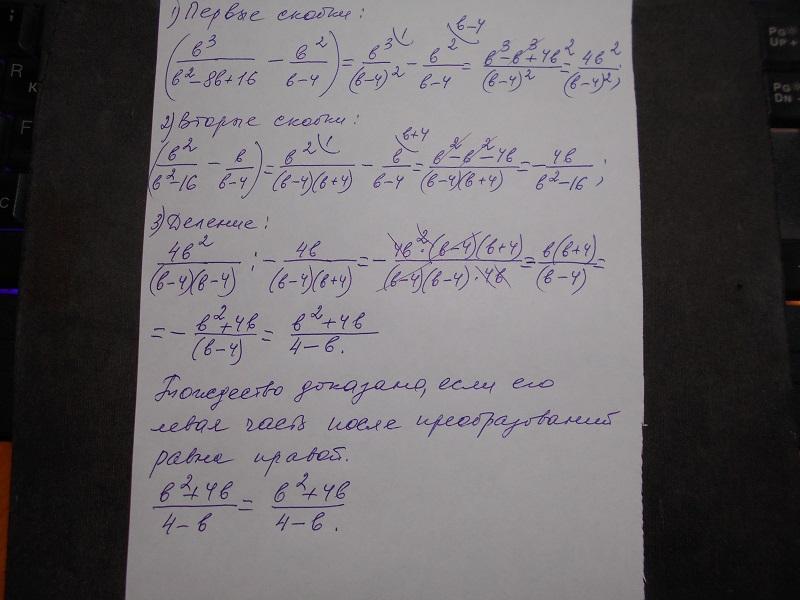 1) Первые скобки:
(в³/(в²-8в+16) - в²/(в-4)) = в³\1/(в-4)² - в²\в-4/(в-4) = (в³-в³+4в²)/(в-4)² = 4в²/(в-4)²;
2) Вторые скобки:
(в²/(в²-16) - в/(в-4)) = в²\1/((в-4)(в+4)) - в\в+4/(в-4) = (в²-в²-4в)/((в-4)(в+4)) = -4в/(в²-16);
3) Деление:
4в²/((в-4)(в-4)) : -4в/((в-4)(в+4)) = -(4в²·(в-4)(в+4))/((в-4)(в-4)·4в) = в(в+4)/(в-4) =
= -(в²+4в)/(в-4) = (в²+4в)/(4-в).
Тождество доказано, если его
левая часть после преобразований
равна правой.
(в²+4в)/(4-в) = (в²+4в)/(4-в).
R
К
F
C
PgUp
PgDn